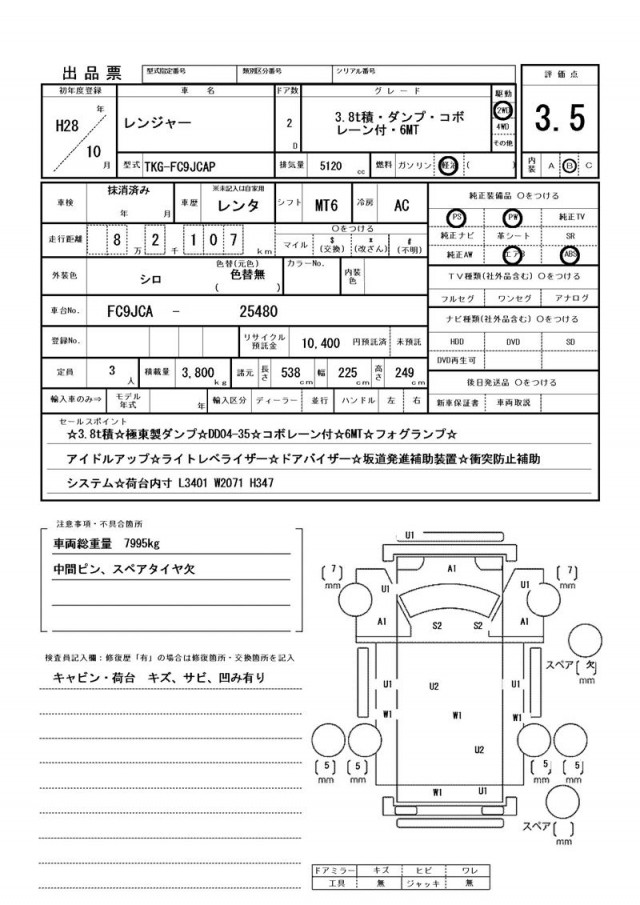 出品票 型式指定番号 類別区分番号 シリアル番号
初年度登録 車 名 ドア数 グレード 駆動 評価点
H28 年 レンジャー 2 D 3.8t積・ダンプ・コボ 2WD 3.5
レーン付・6MT 4WD
10 月 その他
型式 TKG-FC9JCAP 排気量 5120 cc 燃料 ガソリン 軽油 ( ) 内装 A B C
車検 抹消済み 年 月 車歴 ※未記入は自家用 レンタ シフト MT6 冷房 AC 純正装備品 〇をつける
PS PW 純正TV
走行距離 8 万 2 千 1 0 7 km 〇をつける マイル $ (交換) * (改ざん) # (不明) 純正ナビ 革シート SR
純正AW エアB ABS
外装色 シロ 色替(元色) 色替無 ( ) カラーNo. 内装色 TV種類(社外品含む) 〇をつける
フルセグ ワンセグ アナログ
車台No. FC9JCA - 25480 ナビ種類(社外品含む) 〇をつける
登録No. リサイクル預託金 10,400 円預託済 未預託 HDD DVD SD
DVD再生可
定員 3 人 積載量 3,800 kg 諸元 長さ 538 cm 幅 225 cm 高さ 249 cm 後日発送品 〇をつける
輸入車のみ⇒ モデル年式 年 輸入区分 ディーラー 並行 ハンドル 左 右 新車保証書 車両取説
セールスポイント
☆3.8t積☆極東製ダンプ☆DD04-35☆コボレーン付☆6MT☆フォグランプ☆
アイドルアップ☆ライトレベライザー☆ドアバイザー☆坂道発進補助装置☆衝突防止補助
システム☆荷台内寸 L3401 W2071 H347
注意事項・不具合箇所
車両総重量 7995kg
中間ピン、スペアタイヤ欠
検査員記入欄：修復歴「有」の場合は修復箇所・交換箇所を記入
キャビン・荷台 キズ、サビ、凹み有り
U1
[7] mm A1 [7] mm
U1 U1
A1 S2 S2 A1
スペア[欠] mm
U1 U2 U1
W1 W1 W1
U2
[5] mm [5] mm [5] mm [5] mm
W1 U1
スペア[ ] mm
ドアミラー キズ ヒビ ワレ
工具 無 ジャッキ 無